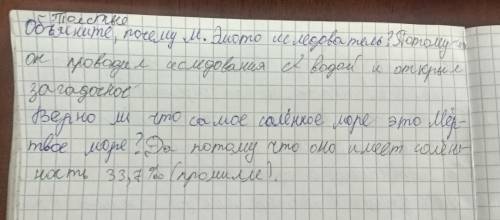 Толстые
Объясните, почему М. Эмото иследователь? Потому что
он проводил иследования с водой и открыл
загадочное
Верно ли что самое солённое море это Мёр-
твое море? Да потому что оно имеет солен-
ность 33,7‰ (промилле).